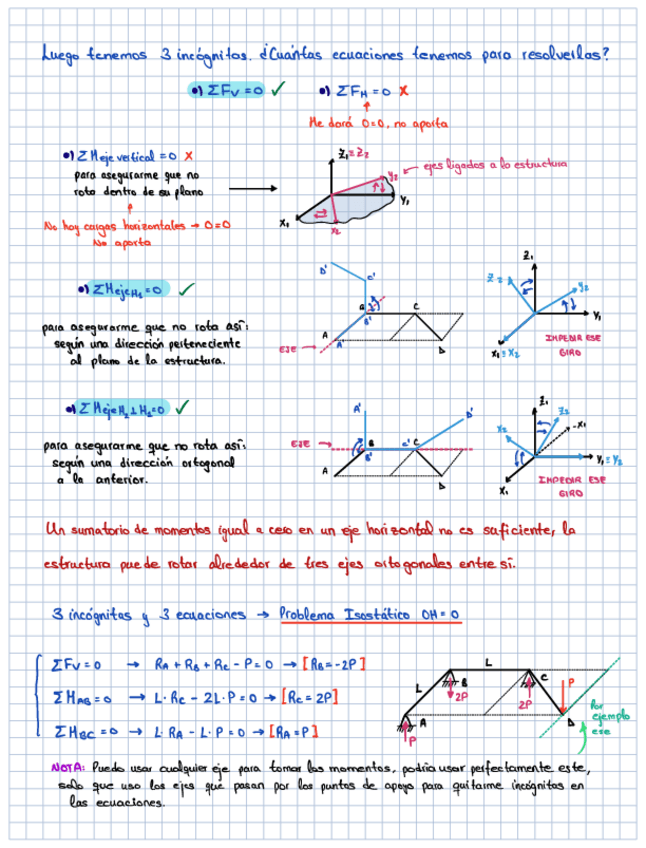 Luego tenemos 3 incógnitas. ¿Cuántas ecuaciones tenemos para resolverlas?
•) ΣFv = 0 ✓ •) ΣFH = 0 X
Me dará 0=0, no aporta
•) ΣM eje vertical = 0 X
para asegurarme que no
rota dentro de su plano
No hay cargas horizontales → 0=0
No aporta
Z₁=Z₂
ejes ligados a la estructura
y₂
Y₁
X₁
X₂
•) ΣM ejeH₁ = 0 ✓
para asegurarme que no rota así:
según una dirección perteneciente
al plano de la estructura.
D'
C'
B
C
B'
A
A'
D
EJE →
Z₁
Z₂
y₂
Y₁
X₁=X₂
IMPEDIR ESE
GIRO
•) ΣM ejeH₂⊥H₁=0 ✓
para asegurarme que no rota así:
según una dirección ortogonal
a la anterior.
A'
D'
EJE →
B
C' C
B'
A
D
Z₁
Z₂
-X₁
X₂
Y₁=Y₂
X₁
IMPEDIR ESE
GIRO
Un sumatorio de momentos igual a cero en un eje horizontal no es suficiente, la
estructura puede rotar alrededor de tres ejes ortogonales entre sí.
3 incógnitas y 3 ecuaciones → Problema Isostático GH=0
ΣFv = 0 → RA + RB + RC - P = 0 → [RB = -2P]
ΣMAB = 0 → L·RC - 2L·P = 0 → [RC = 2P]
ΣMBC = 0 → L·RA - L·P = 0 → [RA = P]
L
L
B
C
P
2P
2P
A
D
P
Por
ejemplo
ese
NOTA: Puedo usar cualquier eje para tomar los momentos, podría usar perfectamente este,
solo que uso los ejes que pasan por los puntos de apoyo para quitarme incógnitas en
las ecuaciones.